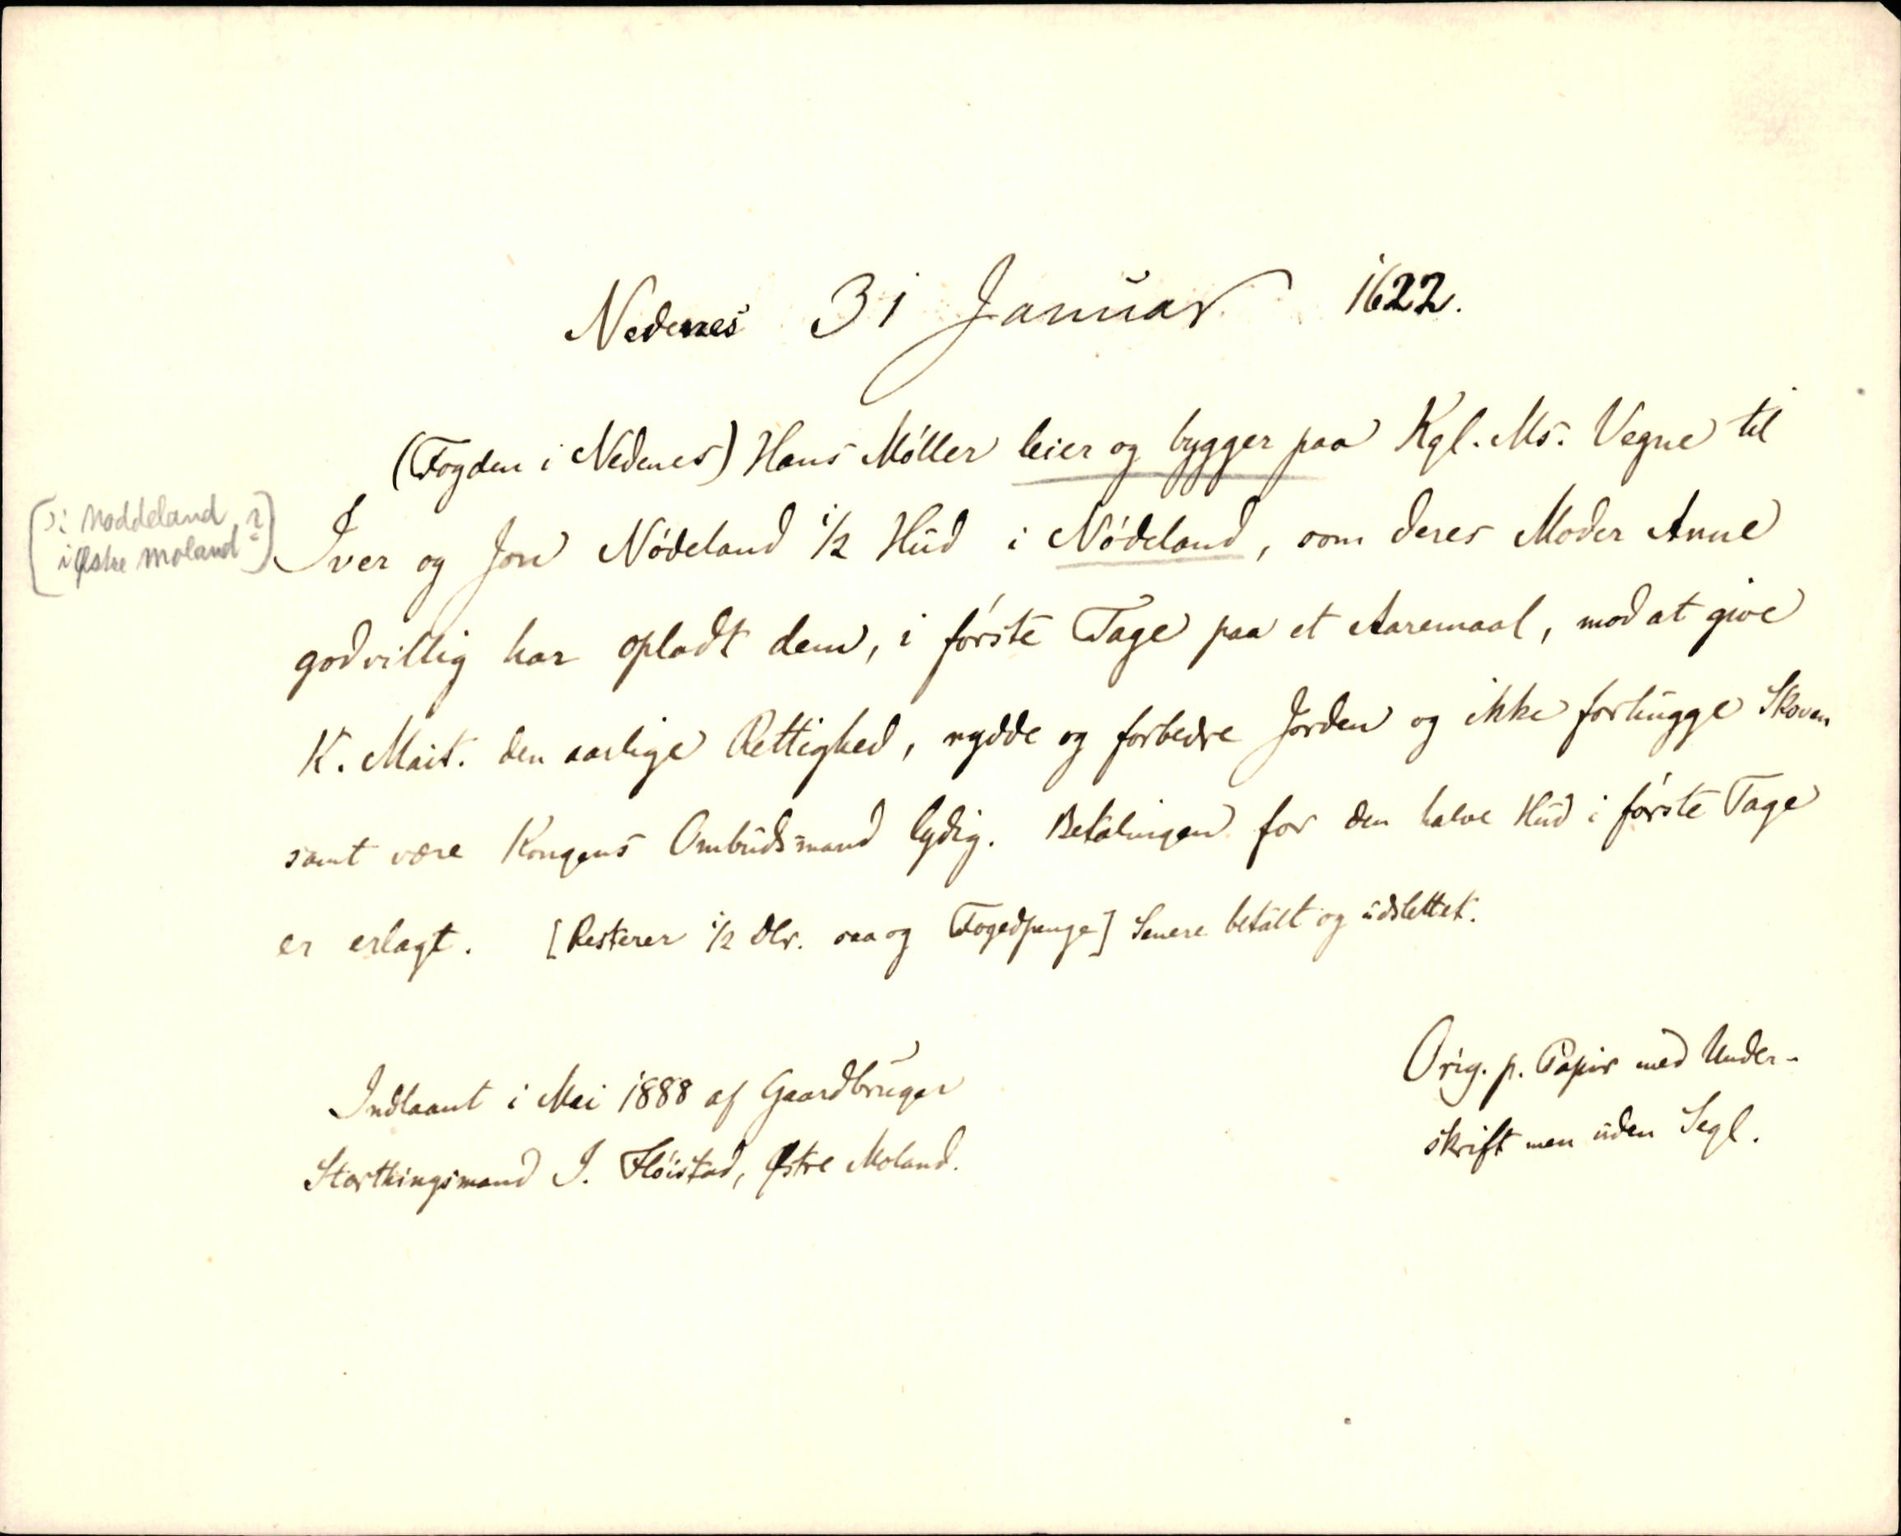 Nedenes 31 Januar 1622.
(Fogden i Nedenes) Hans Møller leier og bygger paa Kgl. Ms. Vegne til
[ɔ: Noddeland
i Østre Moland?]
Iver og Jon Nødeland 1/2 Hud i Nødeland, som deres Moder Anne
godvillig har opladt dem, i første Tage paa et Aaremaal, mod at give
K. Mait. den aarlige Rettighed, rydde og forbedre Jorden og ikke forhugge Skoven
samt være Kongens Ombudsmand lydig. Betalingen for den halve Hud i første Tage
er erlagt. [Resterer 1/2 Dlr. saa og Fogedpenge] Senere betalt og udslettet.
Orig. p. Papir med Under-
skrift men uden Segl.
Indlaant i Mai 1888 af Gaardbruger
Storthingsmand J. Fløistad, Østre Moland.